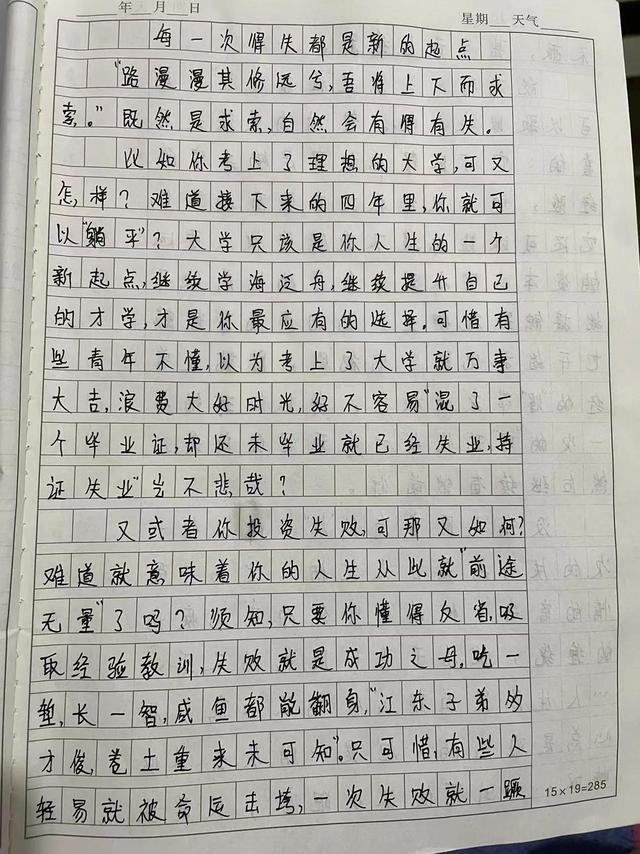 年 月 日 星期 天气
每一次得失都是新的起点
“路漫漫其修远兮,吾将上下而求
索。”既然是求索,自然会有得有失。
比如你考上了理想的大学,可又
怎样?难道接下来的四年里,你就可
以“躺平”?大学只该是你人生的一个
新起点,继续学海泛舟,继续提升自己
的才学,才是你最应有的选择。可惜有
些青年不懂,以为考上了大学就万事
大吉,浪费大好时光,好不容易“混了一
个毕业证,却还未毕业就已经失业,持
证失业”岂不悲哉?
又或者你投资失败,可那又如何?
难道就意味着你的人生从此就“前途
无量”了吗?须知,只要你懂得反省,吸
取经验教训,失败就是成功之母。吃一
堑,长一智,咸鱼都能翻身,“江东子弟多
才俊,卷土重来未可知”。只可惜,有些人
轻易就被命运击垮,一次失败就一蹶
15×19=285